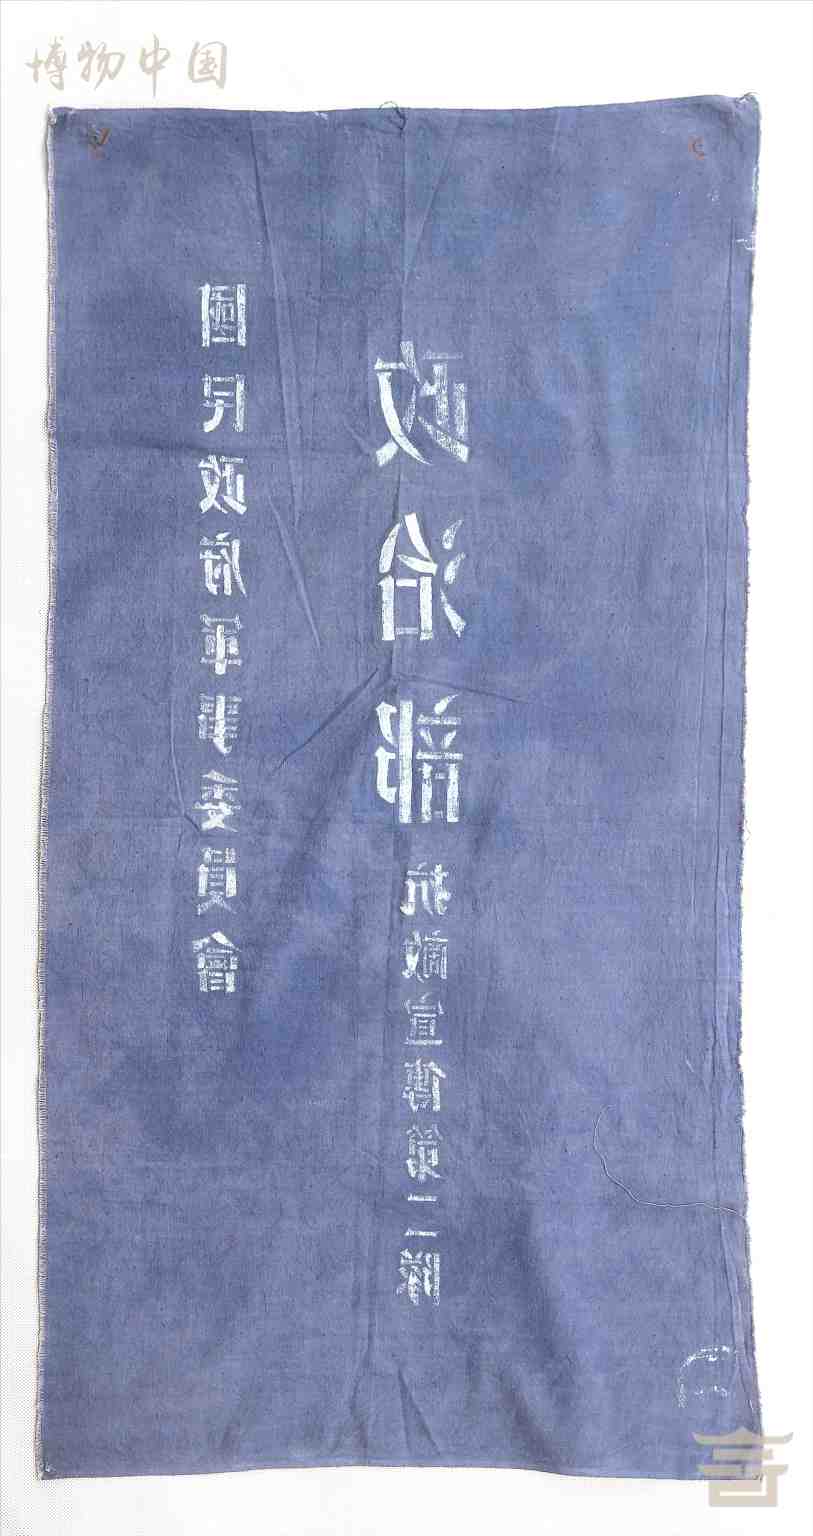 博物中国
國民政府軍事委員會
政治部
抗敵宣傳第二隊